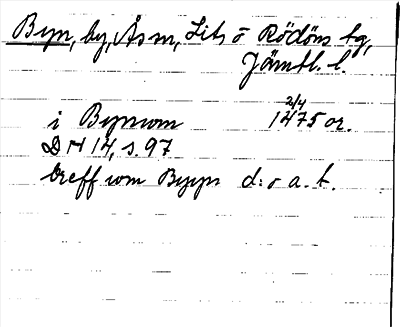 Byn, by, Ås sn, Lits o Rödöns tg,
Jämtl. l.
i Bynom 2/4 1475 or.
DN 14, s. 97
breff som Bypn d: o a. t.